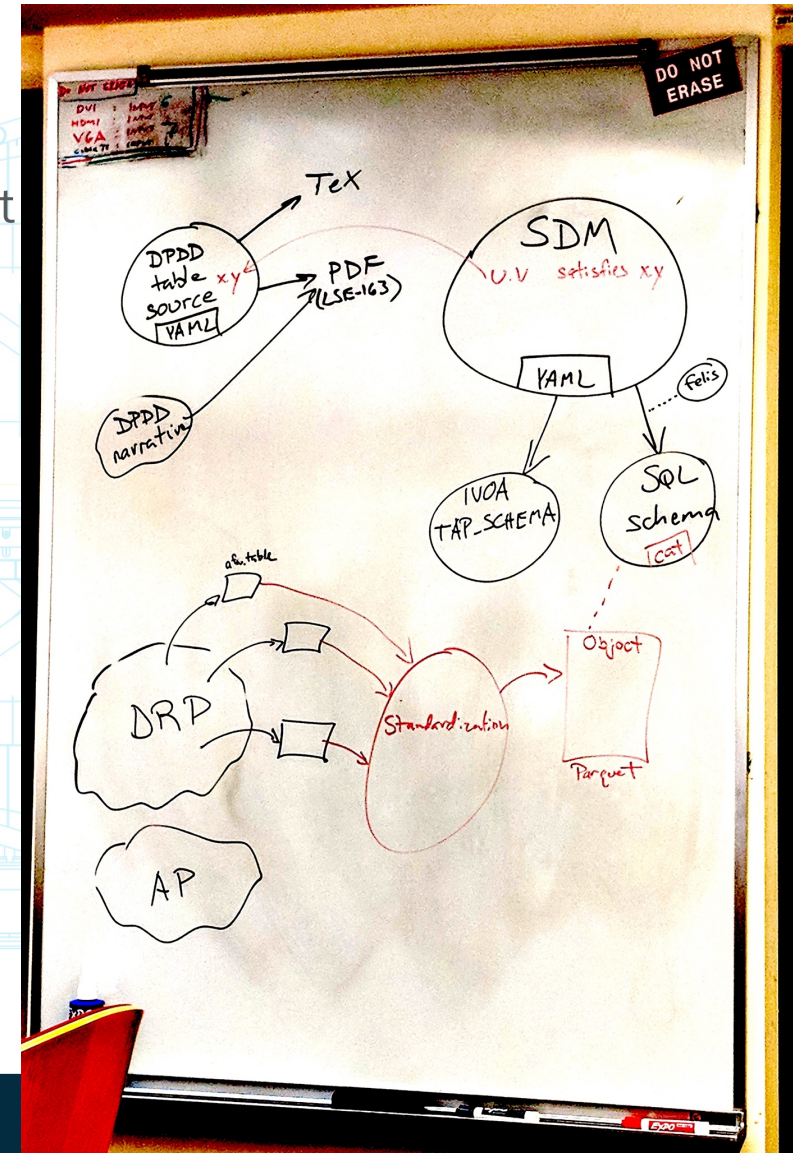 t
DO NOT ERASE
DVI : INPUT
HDMI : INPUT
VGA : INPUT
DO NOT
ERASE
TeX
DPDD
table x.y
source
YAML
PDF
(LSE-163)
DPDD
narrative
SDM
U.V satisfies x.y
YAML
felis
IVOA
TAP_SCHEMA
SQL
schema
cat
afw.table
DRP
Standardization
Object
Parquet
AP
EXPO